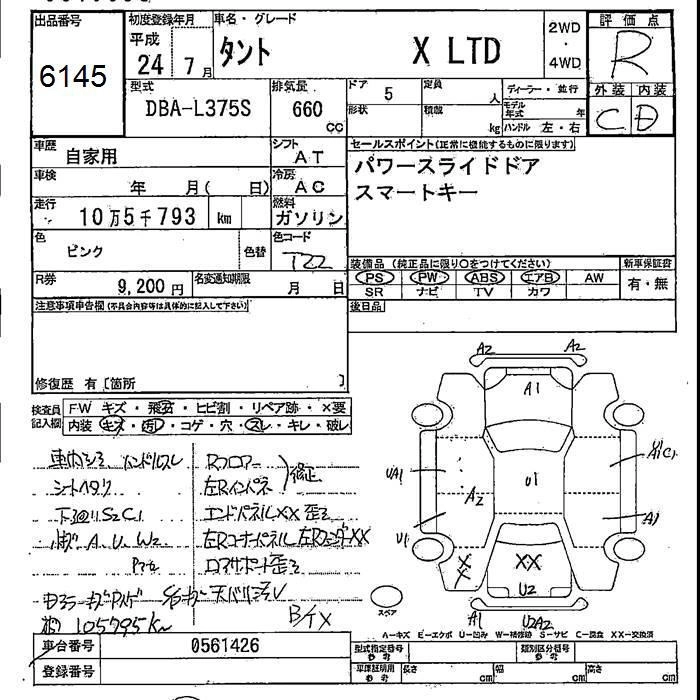 出品番号
6145
初度登録年月
平成
24 7月
車名・グレード
タント X LTD
2WD
・
4WD
評価点
R
外装 内装
C D
型式
DBA-L375S
排気量
660
cc
ドア 5
定員
人
形状
積載
kg
ディーラー・並行
モデル年式 年
ハンドル 左・右
車歴
自家用
シフト
AT
車検
年 月( 日)
冷房
AC
走行
10万5千793 km
燃料
ガソリン
色
ピンク
色替
色コード
T22
R券
9,200円
名変通知期限
月 日
セールスポイント(正常に機能するものに限ります)
パワースライドドア
スマートキー
装備品(純正品に限り○をつけてください)
PS PW ABS エアB AW
SR ナビ TV カワ
新車保証書
有・無
後日品
注意事項申告欄(不具合内容等は具体的に記入して下さい)
修復歴 有[箇所 ]
検査員記入欄
FW キズ・飛石・ヒビ割・リペア跡・×要
内装 キズ・汚れ・コゲ・穴・スレ・キレ・破レ
車内シミ ハンドルスレ
シートヘタリ
下廻リS2C1
A. U. W2
Rフロアー
左Rインパネ
修正
エンドパネルXX 歪ミ
左Rコーナーパネル 左RフェンダーXX
ロアサポート歪ミ
105795km
B/TX
A2 A2
A1
UA1
A2
U1
A1C1
U1
A1
XX
XX
U2
A1 U2A2
スペア
A-キズ E-エクボ U-凹み W-補修跡 S-サビ C-腐食 XX-交換済
車台番号
0561426
登録番号
型式指定番号
参考
類別区分番号
参考
車庫証明用
参考
長さ cm
幅 cm
高さ cm